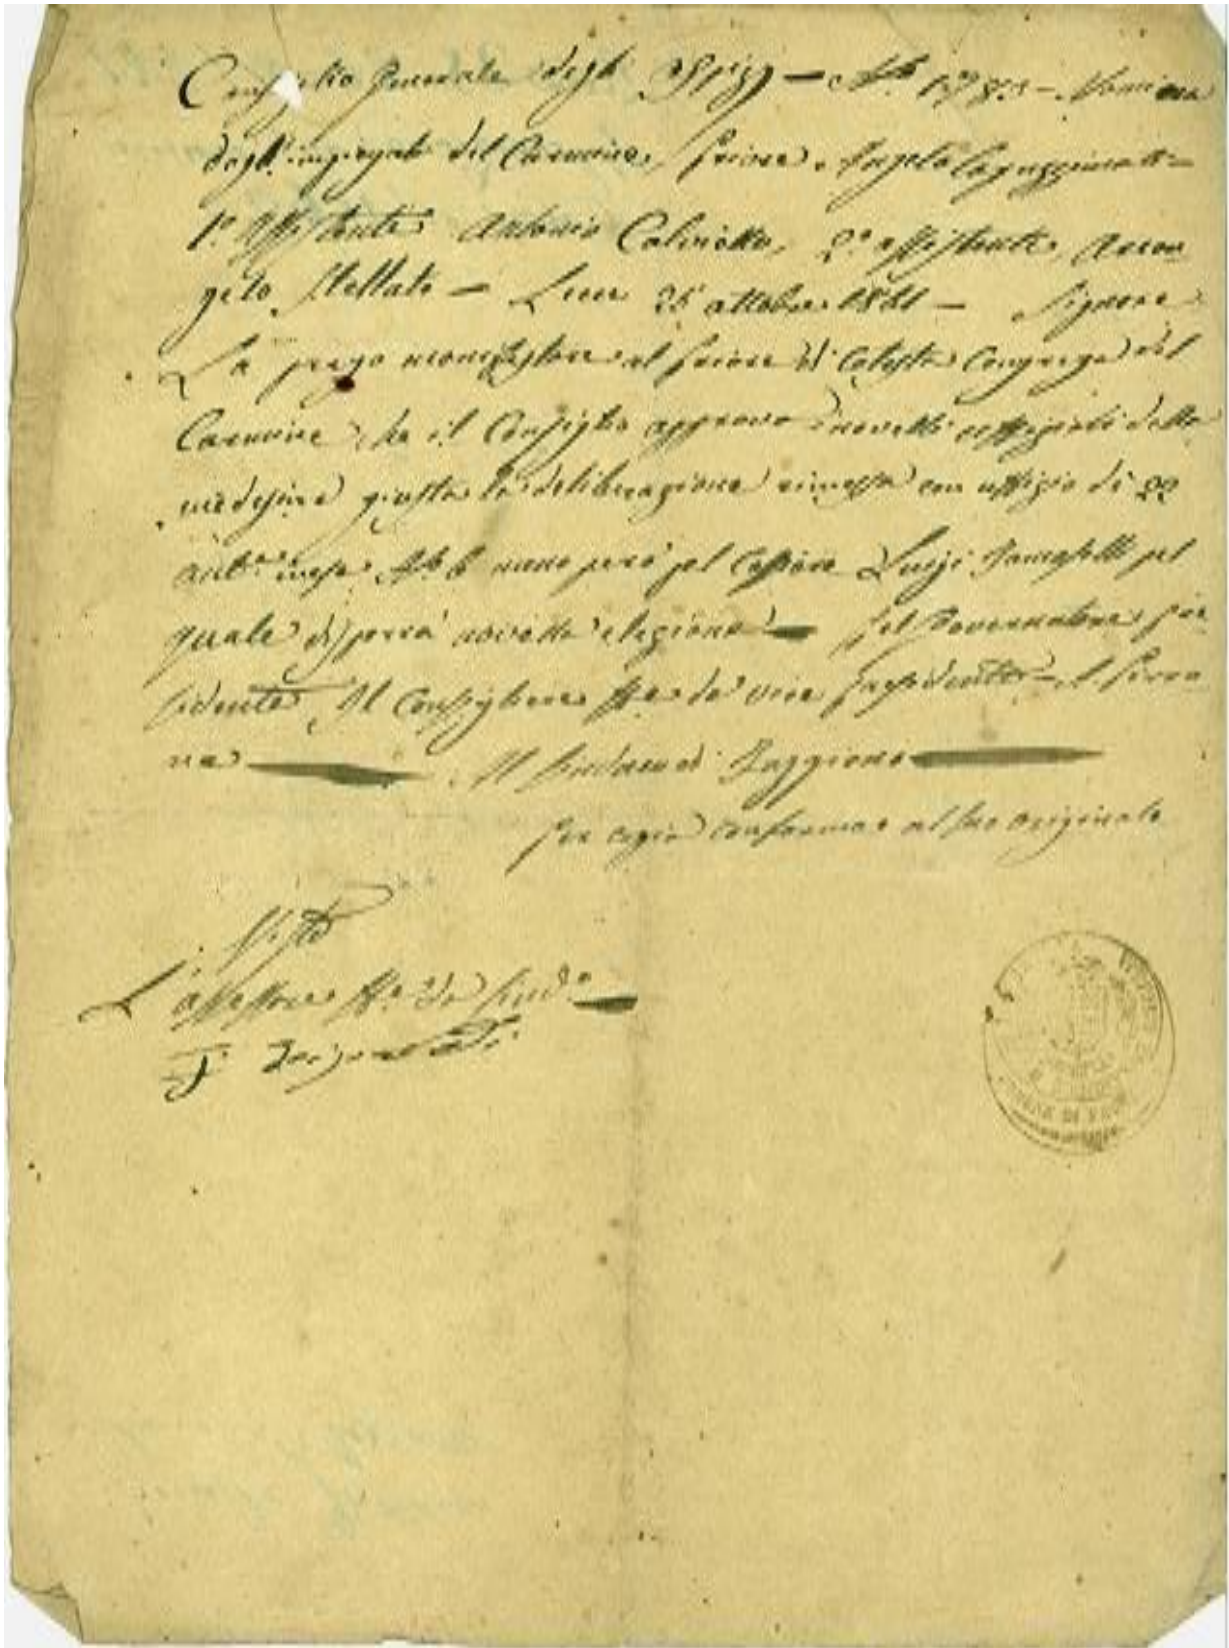 Consiglio Generale degli Ospizj — N.° 1783 — Nomina
degl'impiegati del Carmine, Priore, Angelo Capuzzimati —
1.° Assistente Antonio Calviello, 2.° assistente, Arcan
gelo Stellato — Lecce 25 ottobre 1861 — Signore
La prego manifestare al Priore di cotesta Congrega del
Carmine che il Consiglio approva i novelli uffiziali della
medesima giusta la deliberazione rimessa con uffizio di 22
and.e mese N.° 6 meno però pel Cassiere Luigi pel
quale disporrà novella elezione — Pel Governatore Pre
sidente, Il Consigliere ff.e da vice presidente —
Il Sindaco di Faggiano
Per copia conforme al suo originale
Visto
L'assessore ff.e da Sind.o